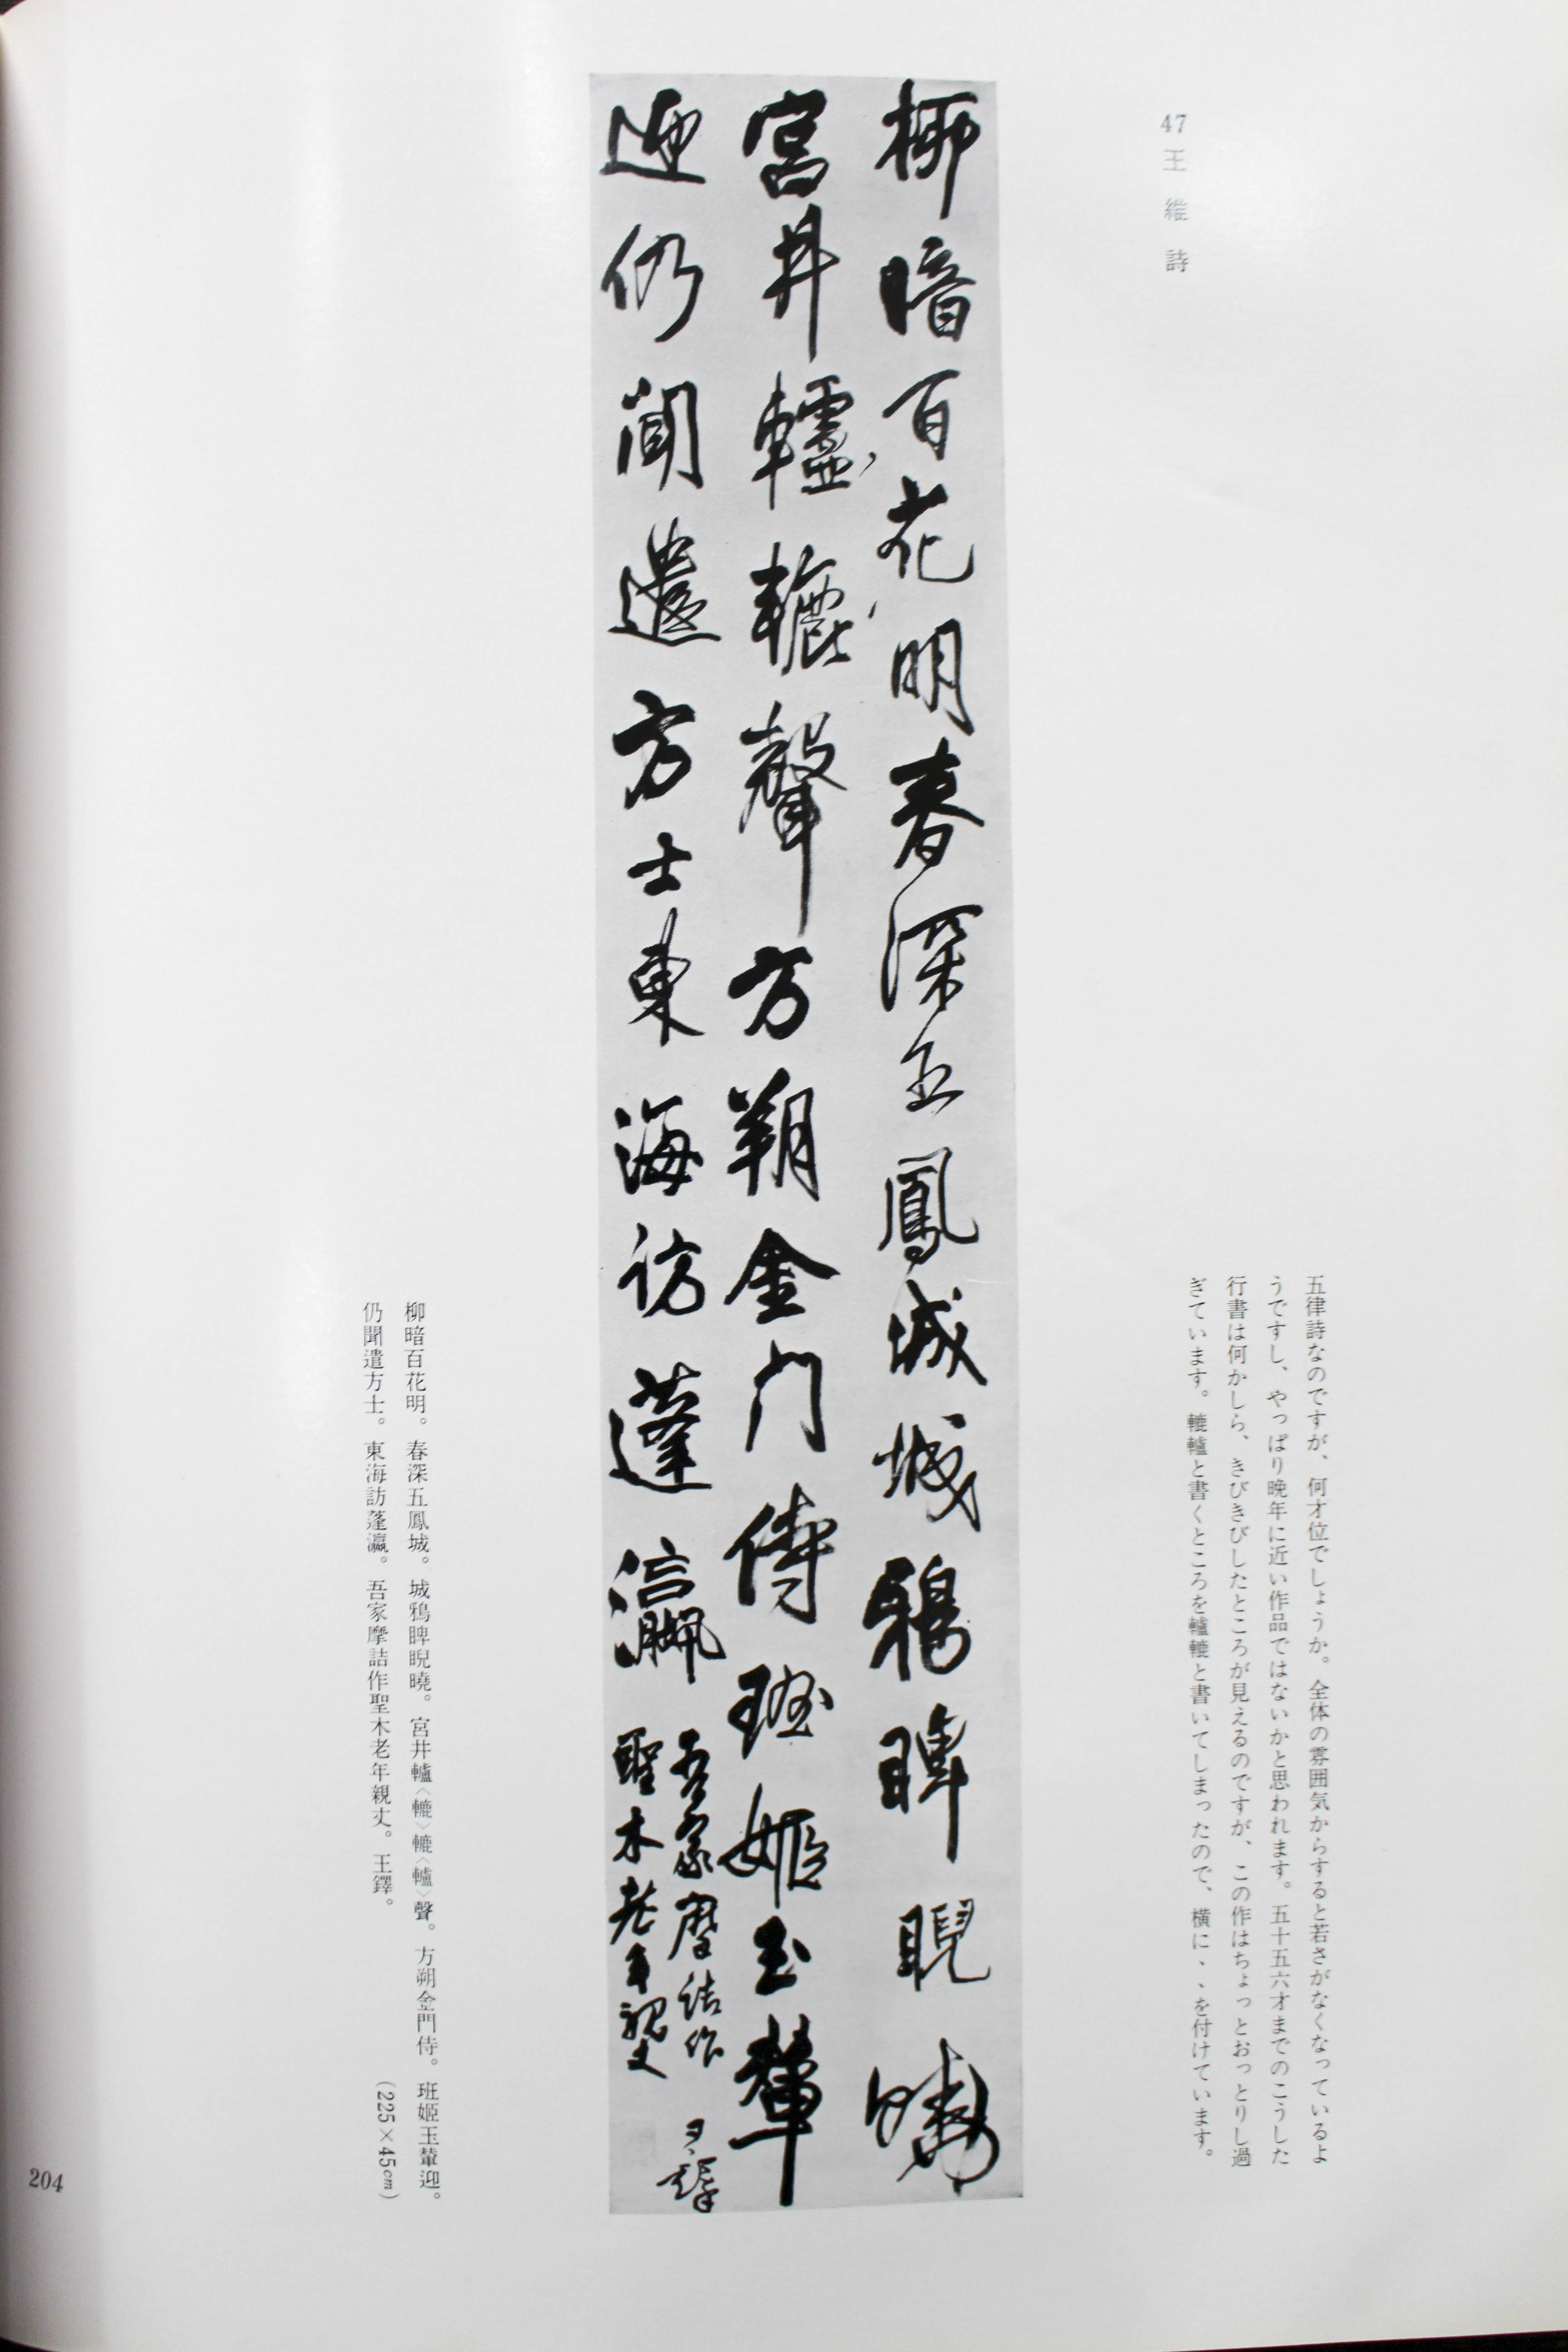 47 王維詩
五律詩なのですが、何才位でしょうか。全体の雰囲気からすると若さがなくなっているよ
うですし、やっぱり晩年に近い作品ではないかと思われます。五十五六才までのこうした
行書は何かしら、きびきびしたところが見えるのですが、この作はちょっとおっとりし過
ぎています。轆轤と書くところを轤轆と書いてしまったので、横に、、を付けています。
柳暗百花明春深五鳳城城鴉睥睨曉
宮井轤轆聲方朔金门侍班姬玉輦
迎仍聞遣方士東海訪蓬瀛
吾家摩詰作
聖木老年親丈
王鐸
柳暗百花明。春深五鳳城。城鴉睥睨曉。宮井轤〈轆〉轆〈轤〉聲。方朔金門侍。班姬玉輦迎。
仍聞遣方士。東海訪蓬瀛。吾家摩詰作聖木老年親丈。王鐸。
(225×45cm)
204